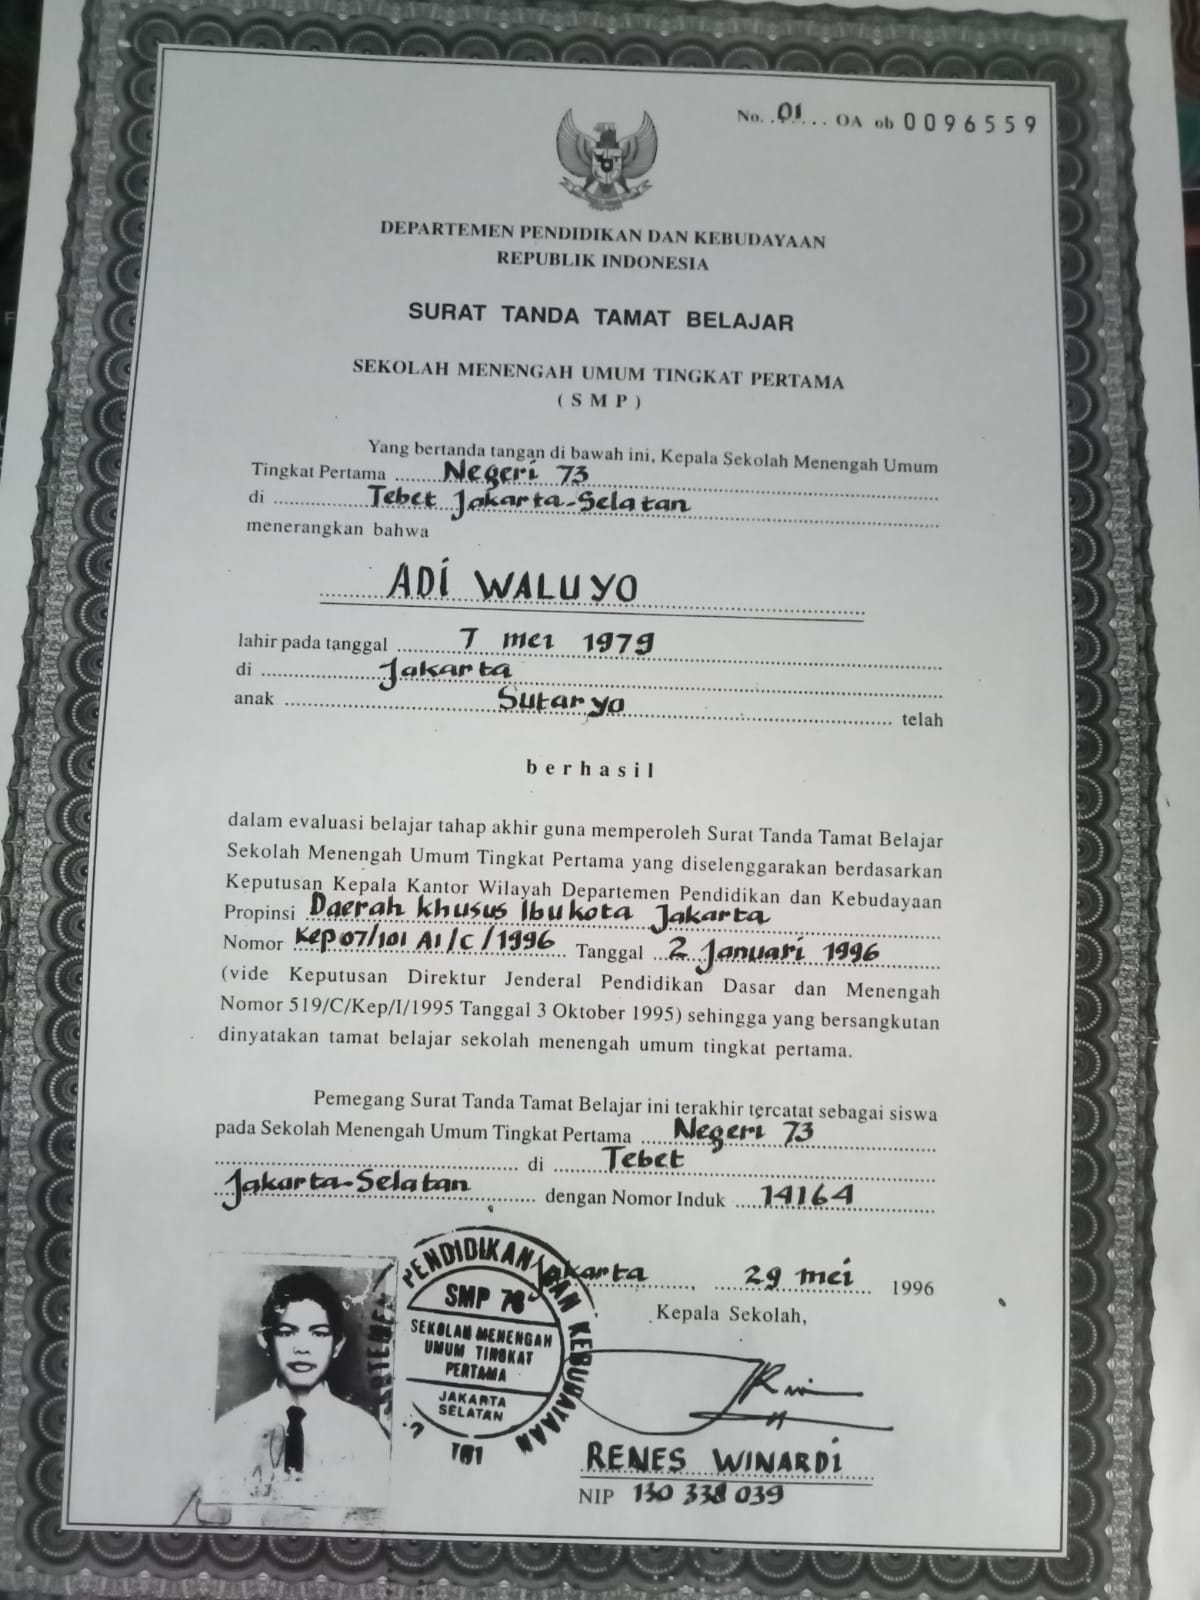 No. 01 OA ob 0096559
DEPARTEMEN PENDIDIKAN DAN KEBUDAYAAN
REPUBLIK INDONESIA
SURAT TANDA TAMAT BELAJAR
SEKOLAH MENENGAH UMUM TINGKAT PERTAMA
( S M P )
Yang bertanda tangan di bawah ini, Kepala Sekolah Menengah Umum
Tingkat Pertama Negeri 73
di Tebet Jakarta-Selatan
menerangkan bahwa
ADI WALUYO
lahir pada tanggal 7 mei 1979
di Jakarta
anak Sutaryo telah
berhasil
dalam evaluasi belajar tahap akhir guna memperoleh Surat Tanda Tamat Belajar
Sekolah Menengah Umum Tingkat Pertama yang diselenggarakan berdasarkan
Keputusan Kepala Kantor Wilayah Departemen Pendidikan dan Kebudayaan
Propinsi Daerah khusus Ibukota Jakarta
Nomor Kep 07/101 A1/C/1996 Tanggal 2 Januari 1996
(vide Keputusan Direktur Jenderal Pendidikan Dasar dan Menengah
Nomor 519/C/Kep/I/1995 Tanggal 3 Oktober 1995) sehingga yang bersangkutan
dinyatakan tamat belajar sekolah menengah umum tingkat pertama.
Pemegang Surat Tanda Tamat Belajar ini terakhir tercatat sebagai siswa
pada Sekolah Menengah Umum Tingkat Pertama Negeri 73
di Tebet
Jakarta-Selatan dengan Nomor Induk 14164
Jakarta, 29 mei 1996
Kepala Sekolah,
PENDIDIKAN DAN KEBUDAYAAN
SMP 73
SEKOLAH MENENGAH
UMUM TINGKAT
PERTAMA
JAKARTA
SELATAN
RENES WINARDI
NIP 130 338 039